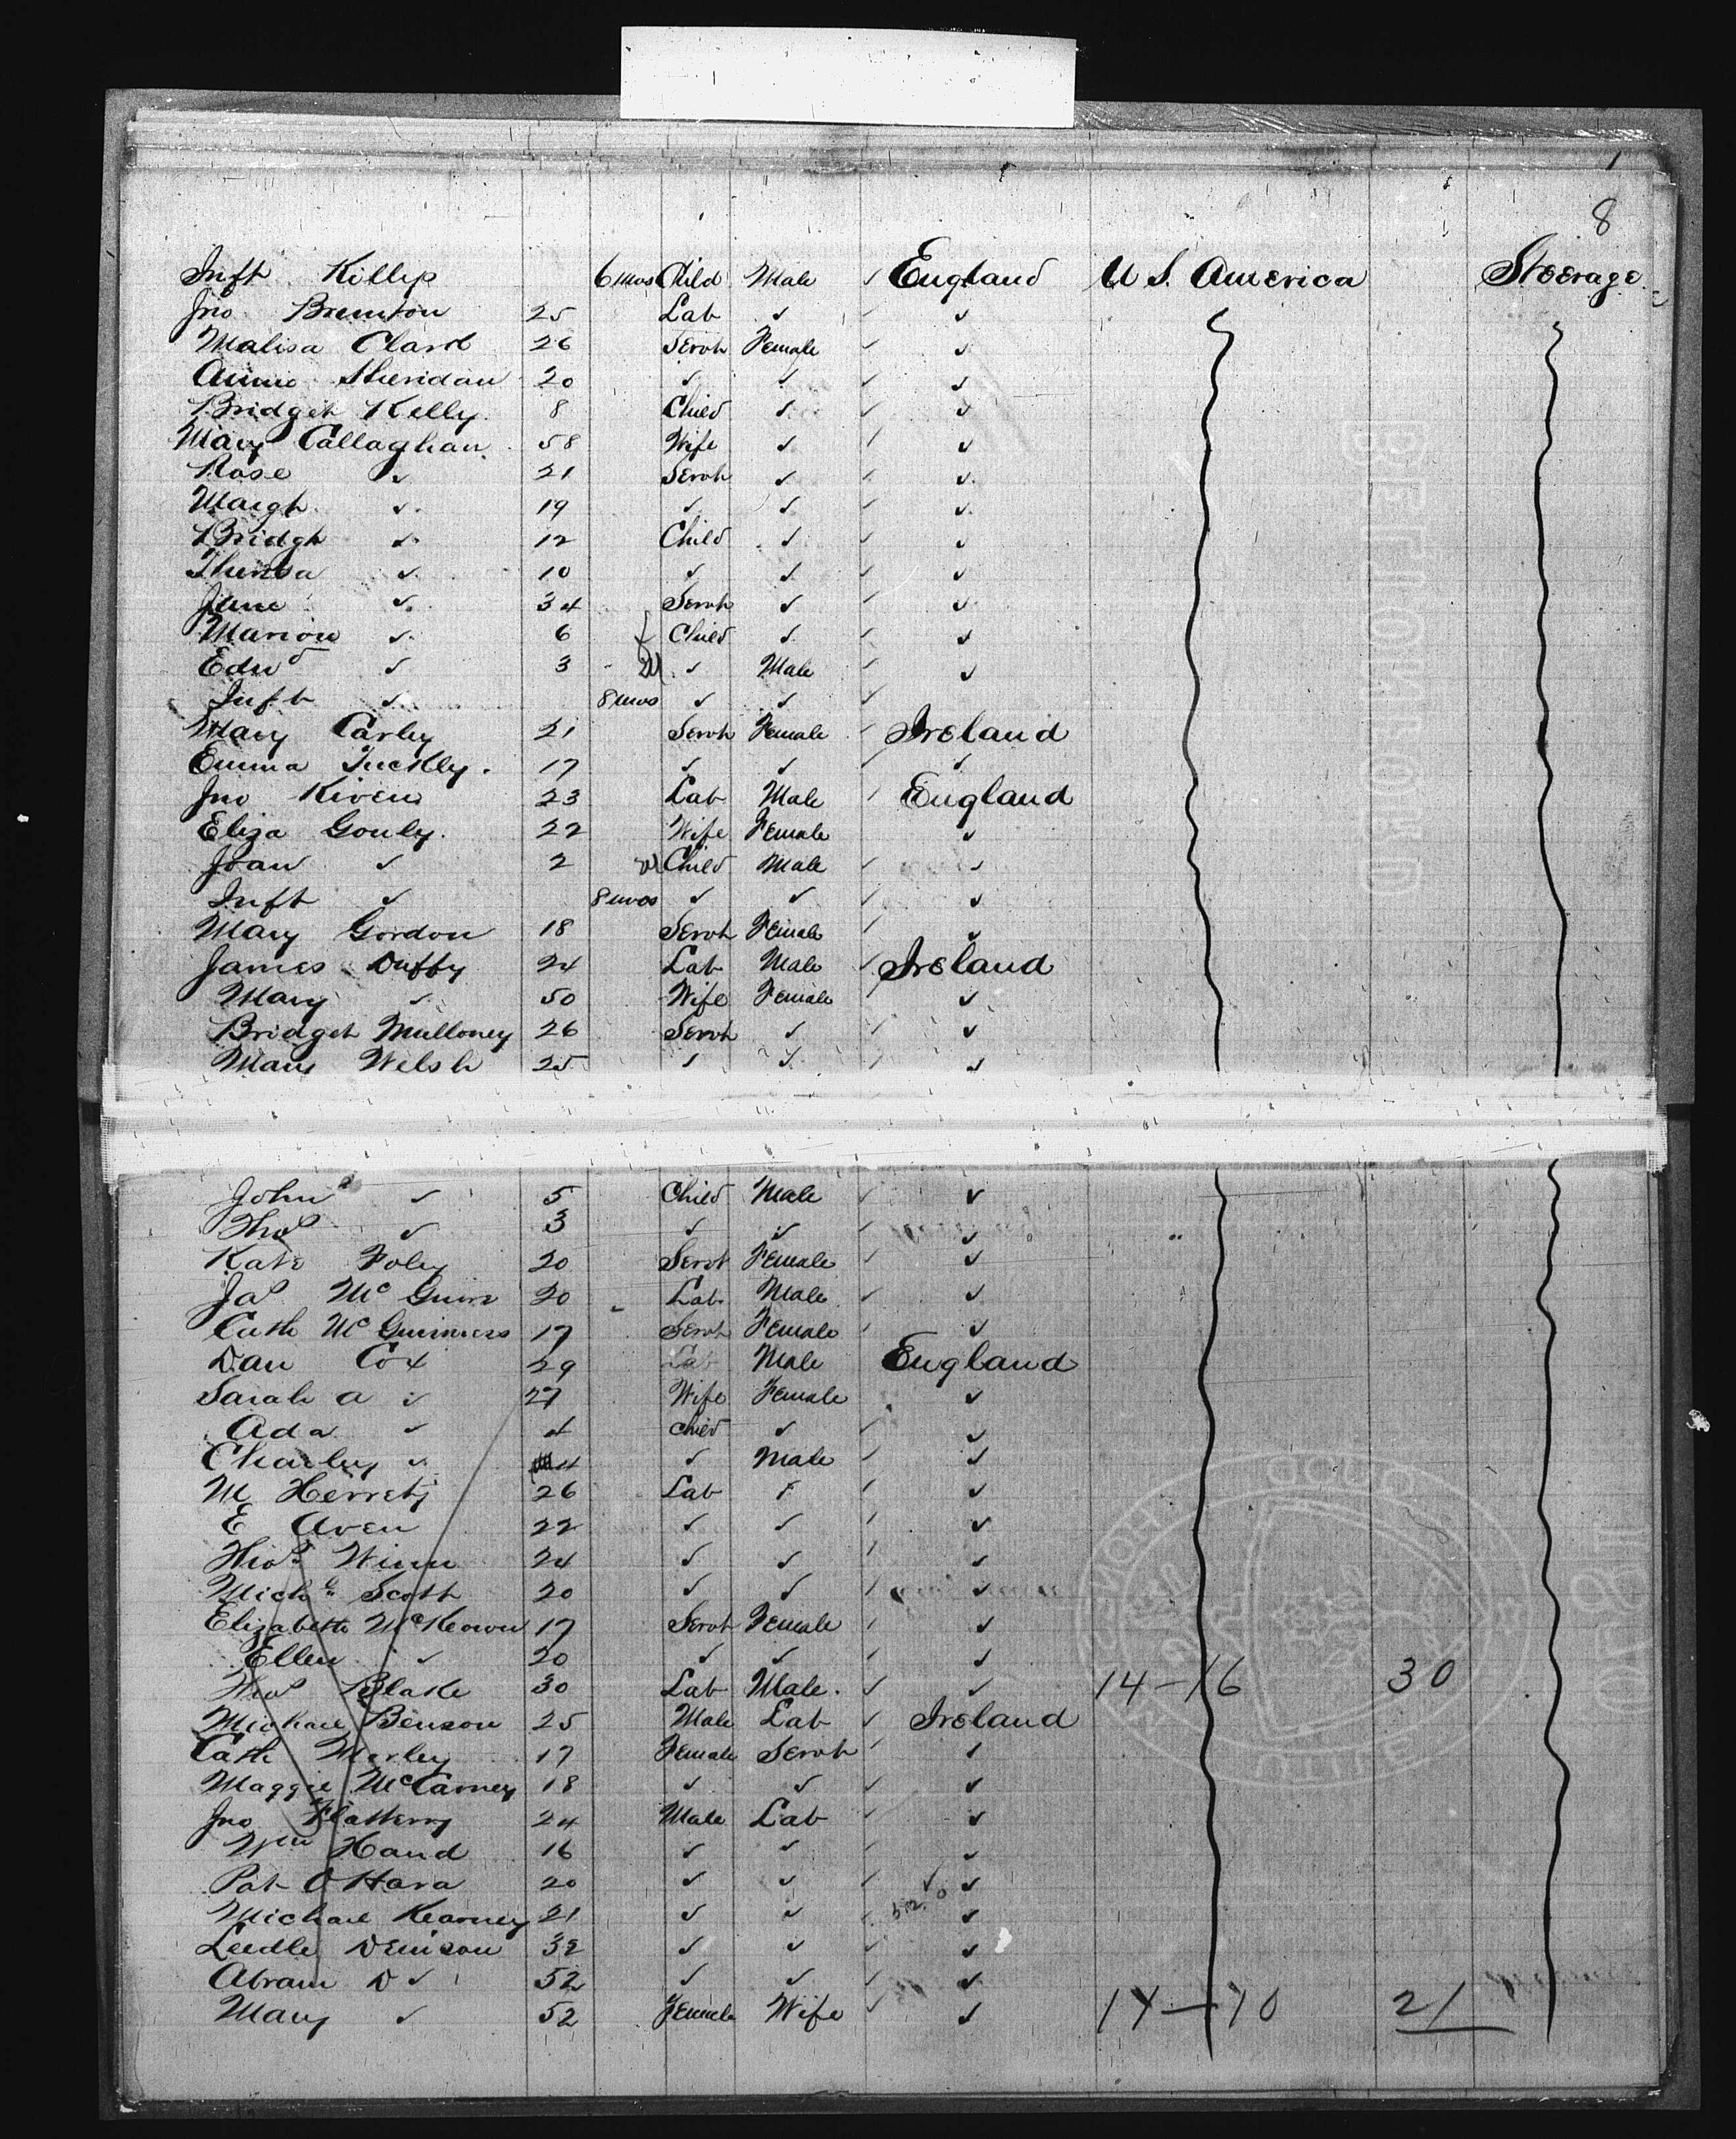 8
Inft Killip 6 mos Child Male ✓ England U S. America Steerage
Jno Brunton 25 Lab ✓ ✓ ✓
Malisa Clark 26 Servt Female ✓ ✓
Annie Sheridan 20 ✓ ✓ ✓ ✓
Bridget Kelly. 8 Child ✓ ✓ ✓
Mary Callaghan 58 Wife ✓ ✓ ✓
Rose ✓ 21 Servt ✓ ✓ ✓
Margt ✓ 19 ✓ ✓ ✓ ✓
Bridgt ✓ 12 Child ✓ ✓ ✓
Theresa ✓ 10 ✓ ✓ ✓ ✓
Jane ✓ 34 Servt ✓ ✓ ✓
Marion ✓ 6 Child ✓ ✓ ✓
Edwd ✓ 3 ✓ Male ✓ ✓
Inft ✓ 8 mos ✓ ✓ ✓
Mary Carley 21 Servt Female ✓ Ireland
Emma Tuckley. 17 ✓ ✓ ✓ ✓
Jno Kiven 23 Lab Male ✓ England
Eliza Gouly. 22 Wife Female ✓
Joan ✓ 2 Child Male ✓ ✓
Inft ✓ 8 mos ✓ ✓ ✓ ✓
Mary Gordon 18 Servt Female ✓ ✓
James Duffy 24 Lab Male ✓ Ireland
Mary ✓ 50 Wife Female ✓ ✓
Bridget Mulloney 26 Servt ✓ ✓ ✓
Mary Welsh 25 ✓ ✓ ✓ ✓
John ✓ 5 Child Male ✓ ✓
Thos ✓ 3 ✓ ✓ ✓ ✓
Kate Foley 20 Servt Female ✓ ✓
Jas Mc Guire 20 Lab Male ✓ ✓
Cath Mc Guinness 17 Servt Female ✓ ✓
Dan Cox 29 Lab Male England
Sarah A ✓ 27 Wife Female ✓
Ada ✓ 4 Child ✓ ✓ ✓
Charley ✓ 4 ✓ Male ✓ ✓
M Herrety 26 Lab ✓ ✓ ✓
E Aven 22 ✓ ✓ ✓ ✓
Thos Winn 24 ✓ ✓ ✓ ✓
Michl Scott 20 ✓ ✓ ✓ ✓
Elizabeth McKeown 17 Servt Female ✓ ✓
Ellen ✓ 20 ✓ ✓ ✓ ✓
Thos Blake 30 Lab Male. ✓ ✓ 14-16 30
Michael Benson 25 Male Lab ✓ Ireland
Cath Morley 17 Female Servt ✓ ✓
Maggie McCarney 18 ✓ ✓ ✓ ✓
Jno Flattery 24 Male Lab ✓ ✓
Wm Hand 16 ✓ ✓ ✓ ✓
Pat O'Hara 20 ✓ ✓ ✓ ✓
Michael Kearney 21 ✓ ✓ ✓ ✓
Leedle Denison 32 ✓ ✓ ✓ ✓
Abram D ✓ 52 ✓ ✓ ✓ ✓
Mary ✓ 52 Female Wife ✓ ✓ 14-70 21